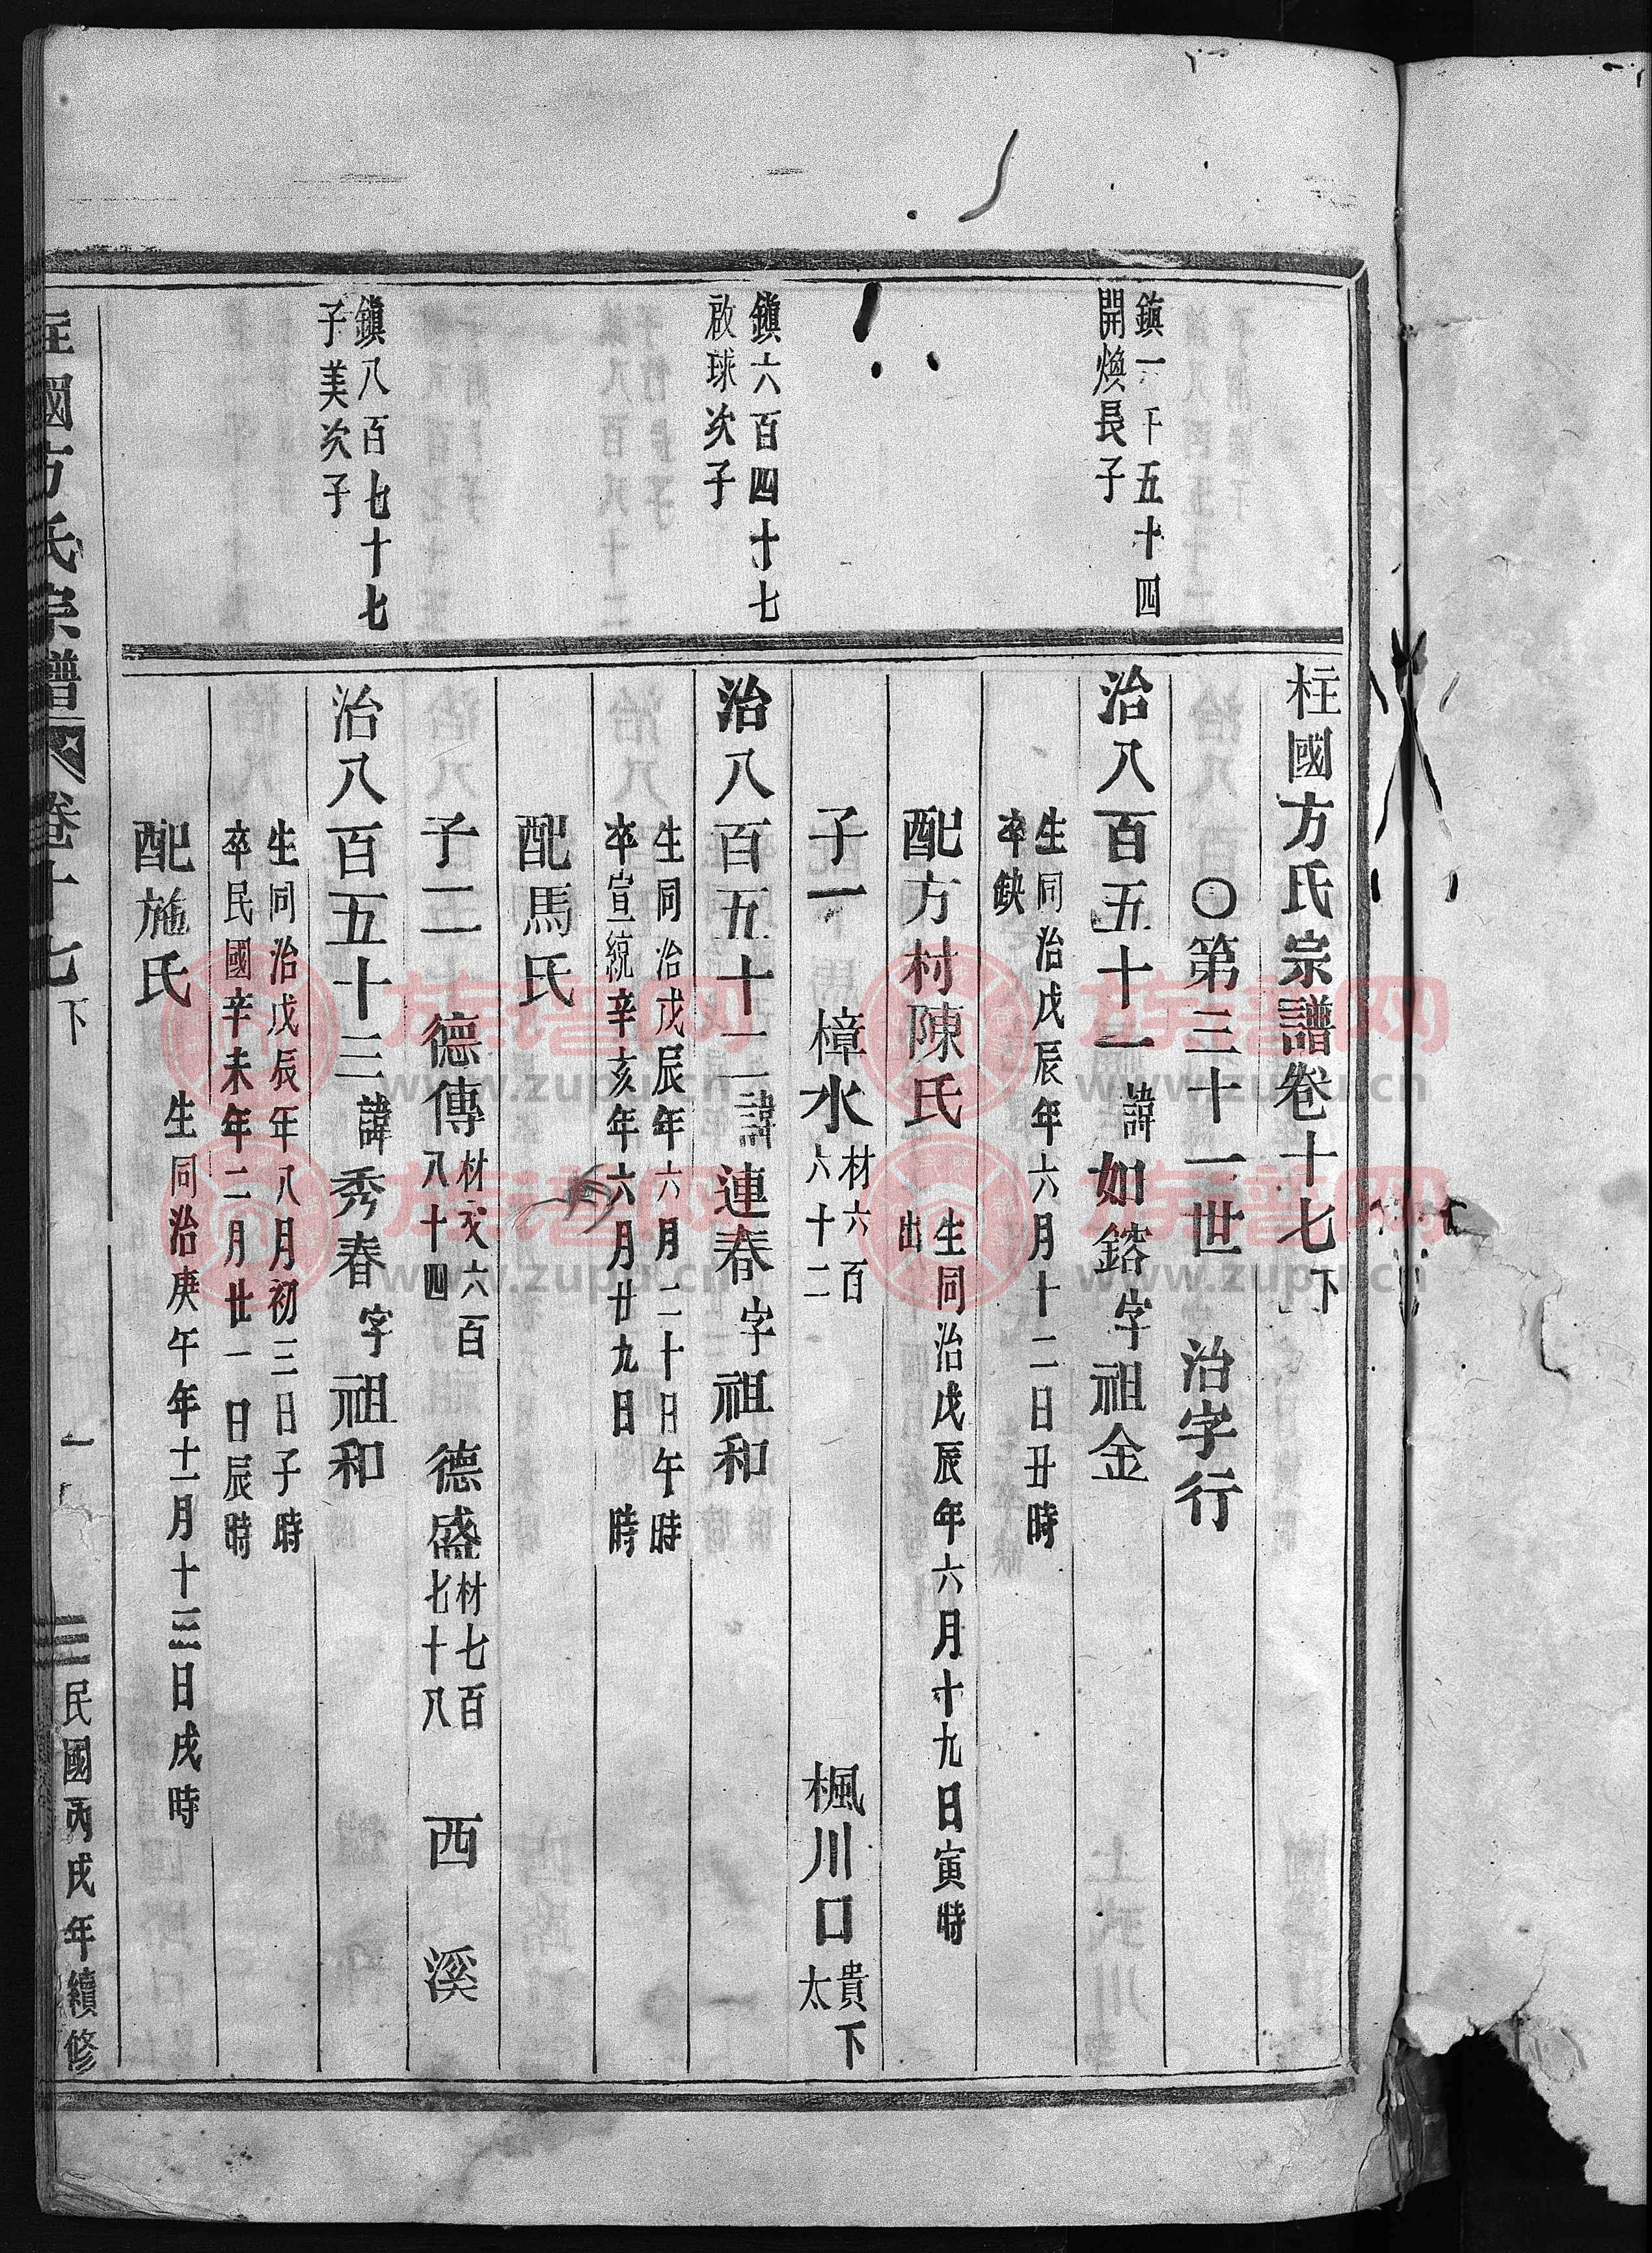 柱國方氏宗譜卷十七下
○第三十一世　治字行
鎮一千五十四
開煥長子
治八百五十一諱如鎔字祖金
生同治戊辰年六月十二日丑時
卒缺
配方村陳氏
生同治戊辰年六月十九日寅時
出
子一　樟水
材六百
六十二
楓川口
貴下
太
鎮六百四十七
啟球次子
治八百五十二諱連春字祖和
生同治戊辰年六月二十日午時
卒宣統辛亥年六月廿九日　時
配馬氏
子二　德傳
材六百
八十四
德盛
材七百
七十八
西溪
鎮八百七十七
子美次子
治八百五十三諱秀春字祖和
生同治戊辰年八月初三日子時
卒民國辛未年二月廿一日辰時
配施氏
生同治庚午年十一月十三日戌時
柱國方氏宗譜
卷十七下
一
民國丙戌年續修
族谱网
www.zupu.cn
族谱网
www.zupu.cn
族谱网
www.zupu.cn
族谱网
www.zupu.cn